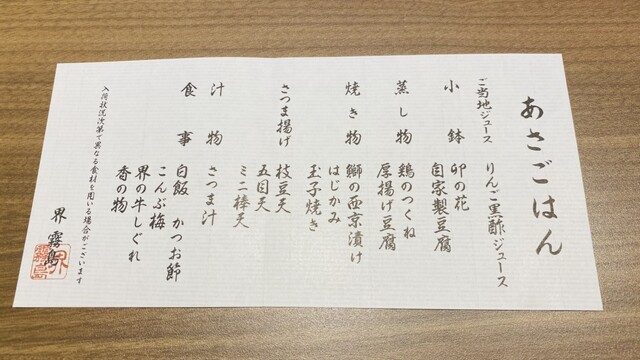 あさごはん
ご当地ジュース りんご黒酢ジュース
小鉢 卯の花
自家製豆腐
蒸し物 鶏のつくね
厚揚げ豆腐
焼き物 鰤の西京漬け
はじかみ
玉子焼き
さつま揚げ 枝豆天
五目天
ミニ棒天
汁物 さつま汁
食事 白飯 かつお節
こんぶ梅
界の牛しぐれ
香の物
入荷状況次第で異なる食材を用いる場合がございます
界 霧島
界
霧島